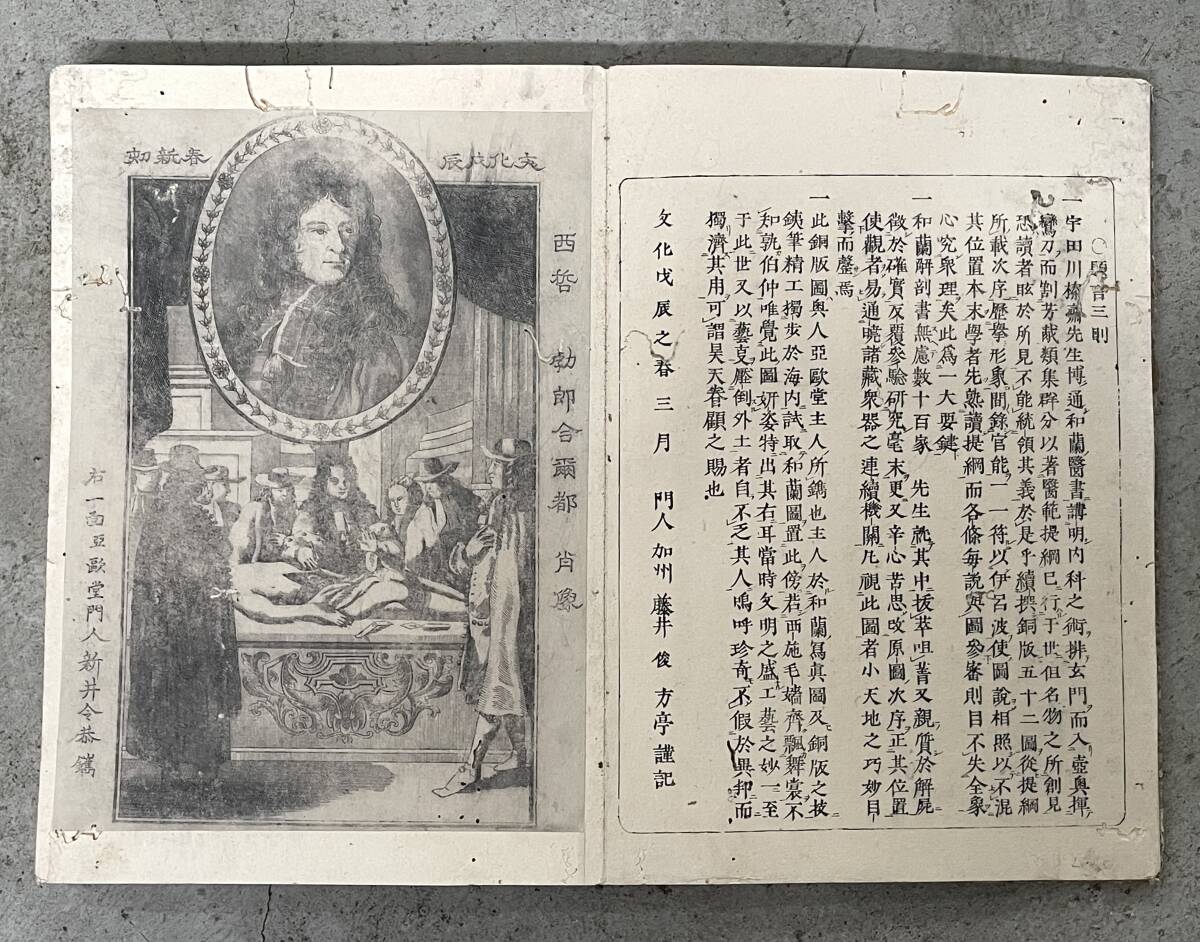 〇題言三則
一宇田川榛齋先生博通和蘭醫書講明内科之術排玄門而入壺奥揮
鸞刀而割芳菽類集群分以著醫範提綱已行于世但名物之所創見
恐讀者眩於所見不能統領其義於是乎續撰銅版五十二圖從提綱
所載次序歷擧形象間錄官能一一符以伊呂波使圖說相照以不混
其位置本末學者先熟讀提綱而各條每說與圖參審則目不失全象
心究衆理矣此爲一大要鍵
一和蘭解剖書無慮數十百家 先生就其中拔萃咀菁又親質於解屍
徵於確實反覆參驗研究毫末更又辛心苦思攷原圖次序正其位置
使觀者易通曉諸藏衆器之連續機關凡視此圖者小天地之巧妙目
擊而罄焉
一此銅版圖輿人亞歐堂主人所鐫也主人於和蘭寫眞圖及銅版之技
銕筆精工獨步於海内試取和蘭圖置此傍若兩施毛嬙齊飄舞裳不
知孰伯仲唯覺此圖妍姿特出其右耳當時文明之盛工藝之妙一至
于此世又以藝克壓倒外土者自不乏其人嗚呼珍奇不假於異邦而
獨濟其用可謂昊天眷顧之賜也
文化戊辰之春三月 門人加州藤井俊方亭謹記
文化戊辰 春新刻
西哲 勃郎合爾都 肖像
右一面亞歐堂門人新井令恭鐫